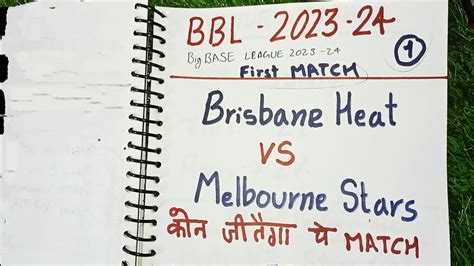 BBL - 2023-24
Big BASE LEAGUE 2023-24
First MATCH
1
Brisbane Heat
VS
Melbourne Stars
कोन जीतेगा ये MATCH